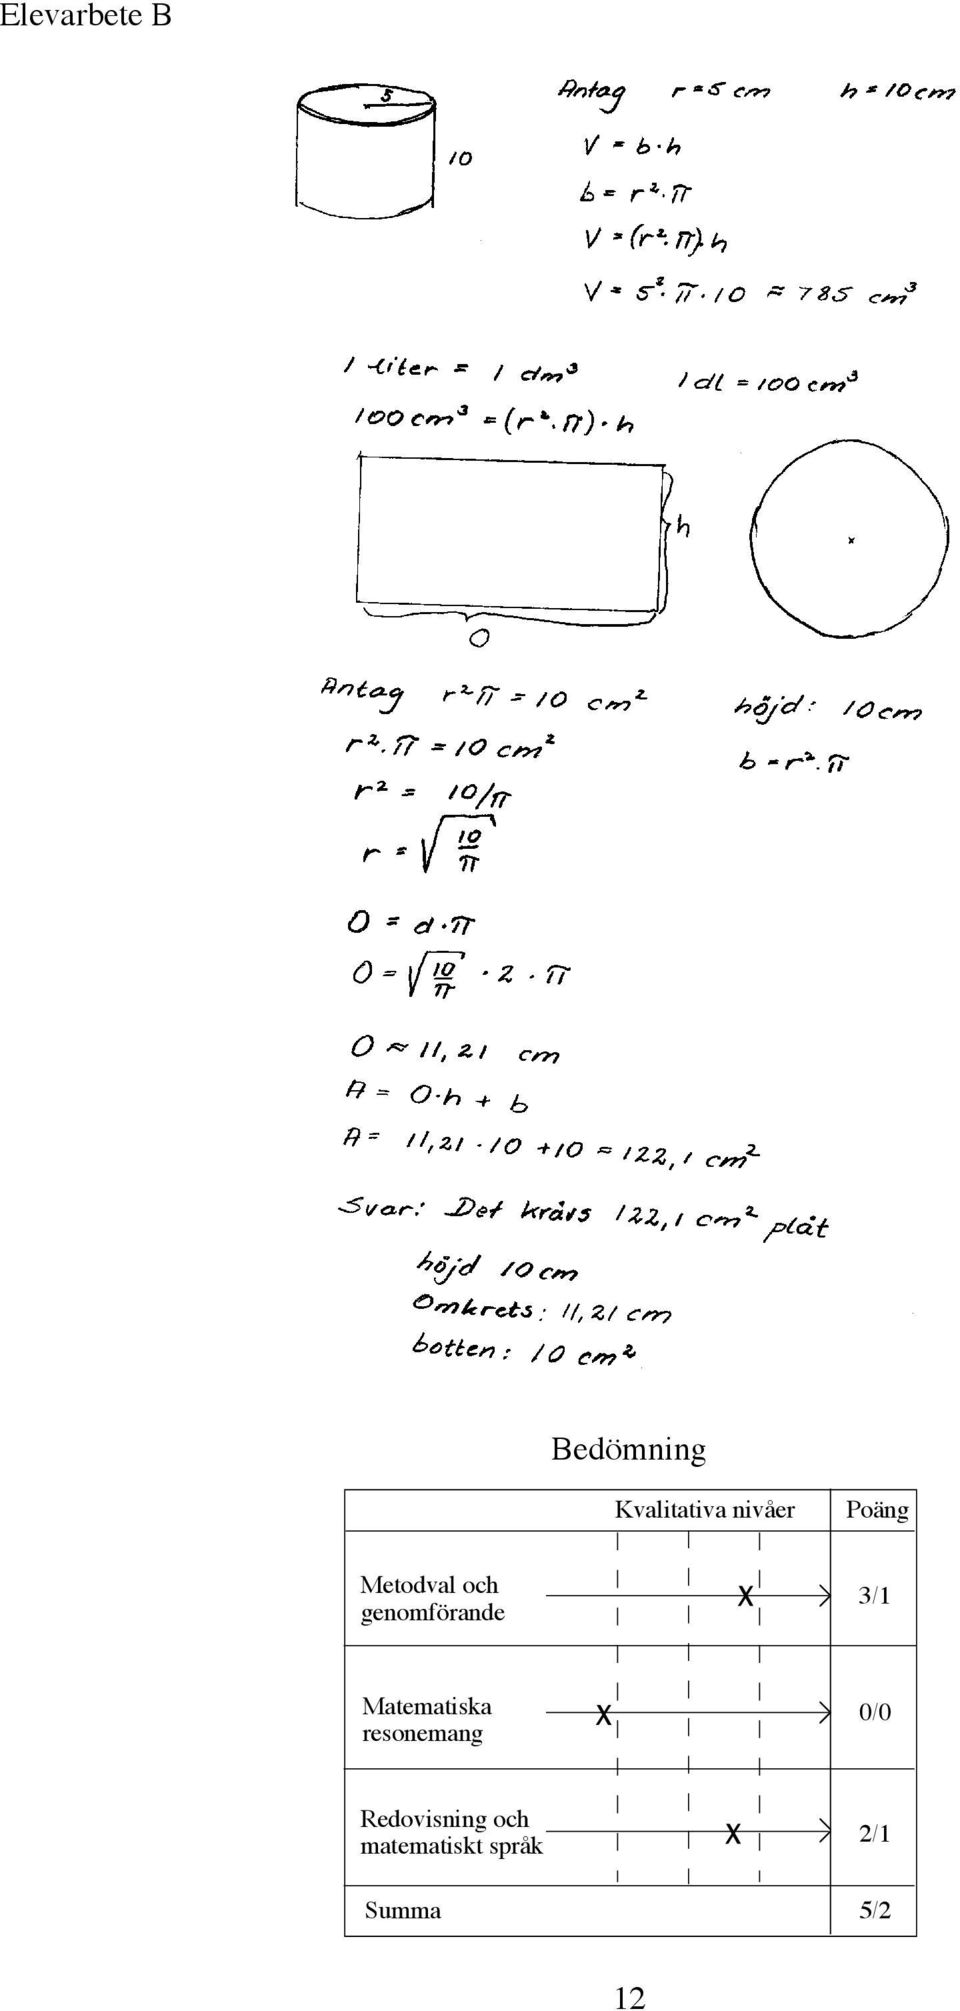 Elevarbete B
5
10
Antag r = 5 cm h = 10 cm
V = b · h
b = r² · π
V = (r² · π) · h
V = 5² · π · 10 ≈ 785 cm³
1 liter = 1 dm³ 1 dl = 100 cm³
100 cm³ = (r² · π) · h
h
O
Antag r²π = 10 cm² höjd: 10 cm
r² · π = 10 cm² b = r² · π
r² = 10/π
r = √(10/π)
O = d · π
O = √(10/π) · 2 · π
O ≈ 11,21 cm
A = O · h + b
A = 11,21 · 10 + 10 ≈ 122,1 cm²
Svar: Det krävs 122,1 cm² plåt
höjd 10 cm
Omkrets: 11,21 cm
botten: 10 cm²
Bedömning
Kvalitativa nivåer Poäng
Metodval och
genomförande X 3/1
Matematiska
resonemang X 0/0
Redovisning och
matematiskt språk X 2/1
Summa 5/2
12